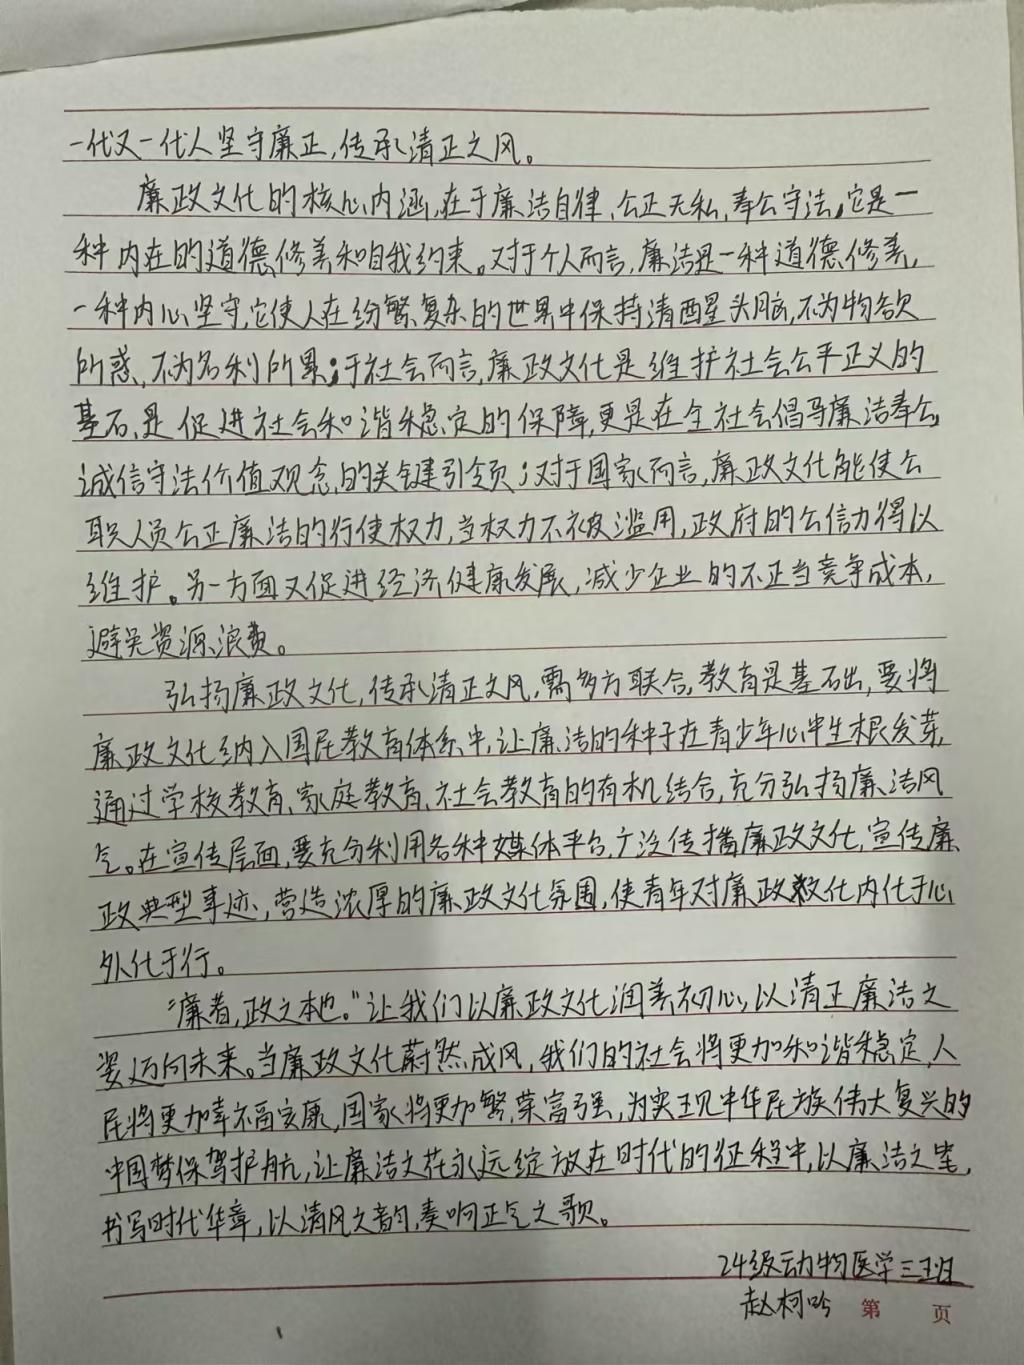 一代又一代人坚守廉正,传承清正之风。
廉政文化的核心内涵,在于廉洁自律、公正无私、奉公守法,它是一
种内在的道德修养和自我约束。对于个人而言,廉洁是一种道德修养,
一种内心坚守,它使人在纷繁复杂的世界中保持清醒头脑,不为物欲
所惑、不为名利所累;于社会而言,廉政文化是维护社会公平正义的
基石,是促进社会和谐稳定的保障,更是在全社会倡导廉洁奉公,
诚信守法价值观念的关键引领;对于国家而言,廉政文化能使公
职人员公正廉洁的行使权力,当权力不被滥用,政府的公信力得以
维护。另一方面又促进经济健康发展,减少企业的不正当竞争成本,
避免资源浪费。
弘扬廉政文化,传承清正文风,需多方联合,教育是基础,要将
廉政文化纳入国民教育体系中,让廉洁的种子在青少年心中生根发芽,
通过学校教育、家庭教育、社会教育的有机结合,充分弘扬廉洁风
气。在宣传层面,要充分利用各种媒体平台,广泛传播廉政文化,宣传廉
政典型事迹,营造浓厚的廉政文化氛围,使青年对廉政文化内化于心
外化于行。
“廉者,政之本也。”让我们以廉政文化润养初心,以清正廉洁之
姿迈向未来。当廉政文化蔚然成风,我们的社会将更加和谐稳定,人
民将更加幸福安康,国家将更加繁荣富强,为实现中华民族伟大复兴的
中国梦保驾护航,让廉洁之花永远绽放在时代的征程中,以廉洁之笔,
书写时代华章,以清风之韵,奏响正气之歌。
24级动物医学三班
赵柯吟 第 页